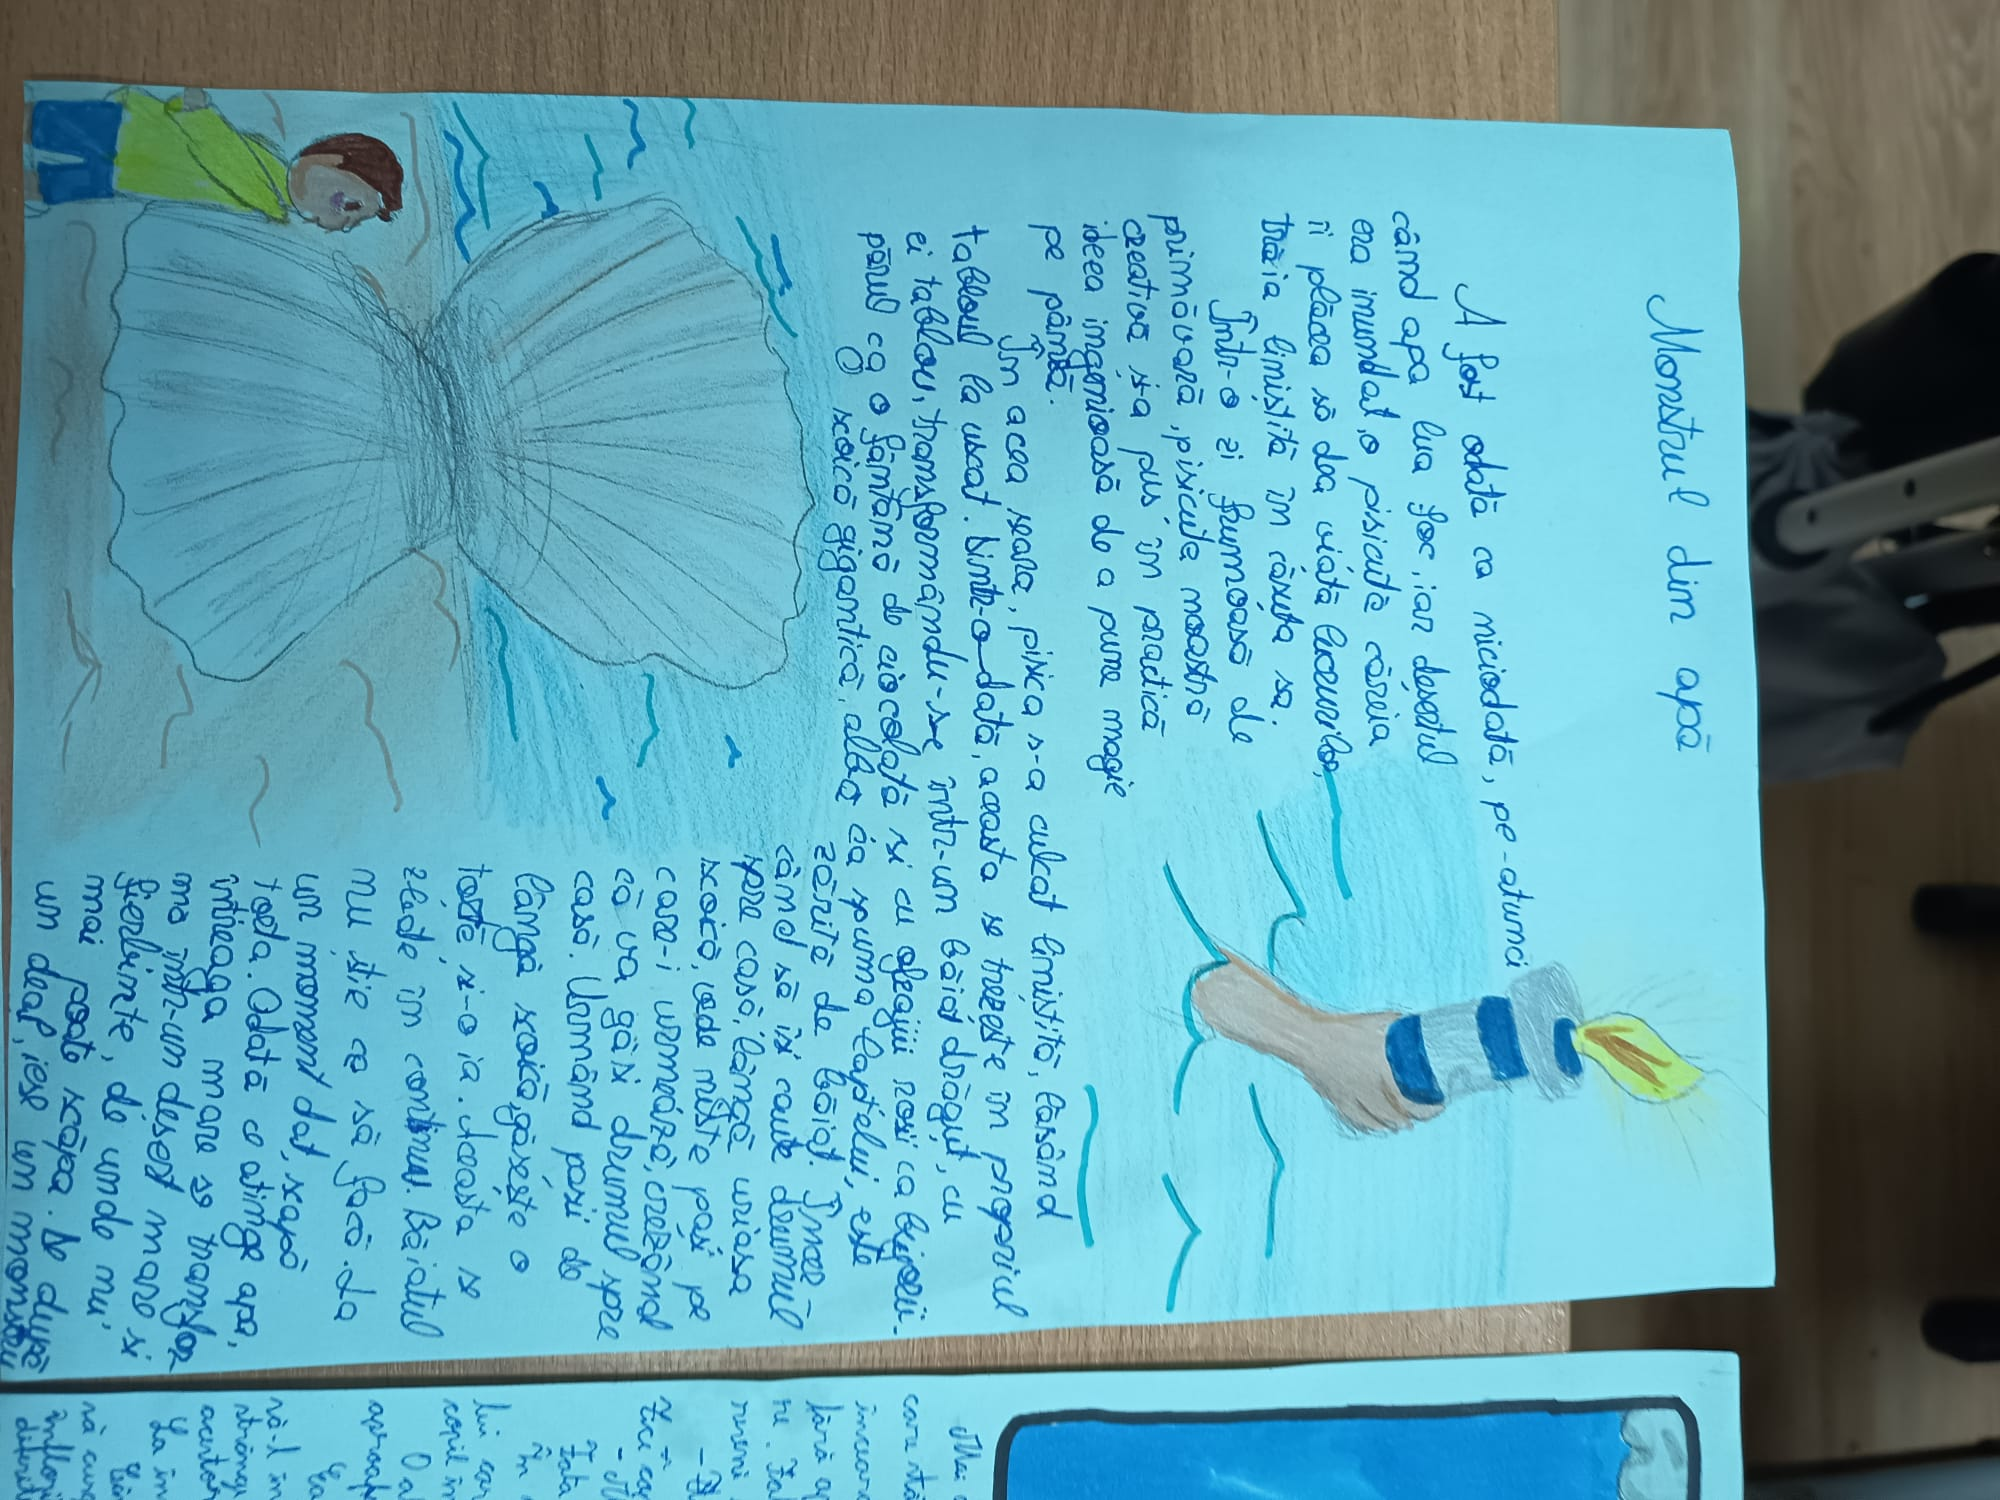 Monstrul din apă
A fost odată ca niciodată, pe-atunci
când apa lua foc, iar deșertul
era inundat, o pisicuță căreia
îi plăcea să dea viață lucrurilor,
trăia liniștită în căsuța sa.
Într-o zi frumoasă de
primăvară, pisicuța noastră
creativă și-a pus în practică
ideea ingenioasă de a pune magie
pe pânză.
În acea seara, pisica s-a culcat liniștită, lăsând
tabloul la uscat. Dintr-o dată, aceasta se trezește în propriul
ei tablou, transformându-se într-un băiat drăguț, cu
părul ca o fântână de ciocolată și cu obrajii roși ca bujorii.
O scoică gigantică, albă ca spuma laptelui, este
zărită de băiat. Încer-
când să își caute drumul
spre casă, lângă uriașa
scoică, vede niște pași pe
care-i urmează, crezând
că va găsi drumul spre
casă. Urmând pașii de
lângă scoică, găsește o
torță și-o ia. Aceasta se
râde în continuu. Băiatul
nu știe ce să facă. La
un moment dat, scapă
torța. Odată ce atinge apa,
întreaga mare se transfor
ma într-un deșert mare și
fierbinte, de unde nu
mai poate scăpa. De după
un deal, iese un monstru
Mai
care stă
fără
Fata
În
O
La în